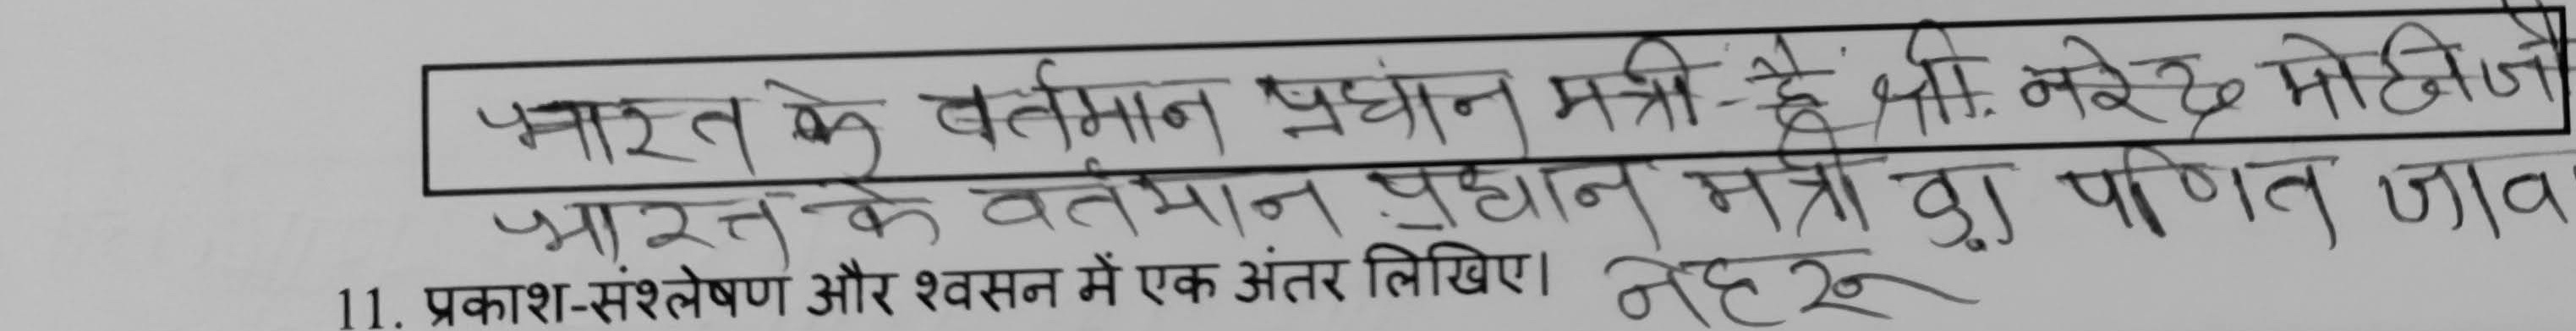 भारत के वर्तमान प्रधांन मत्री - हैं श्री. नरेद्र मोदी जी
भारत के वर्तमान प्रधान मत्री पणित जाव
नेहरू
11. प्रकाश-संश्लेषण और श्वसन में एक अंतर लिखिए।